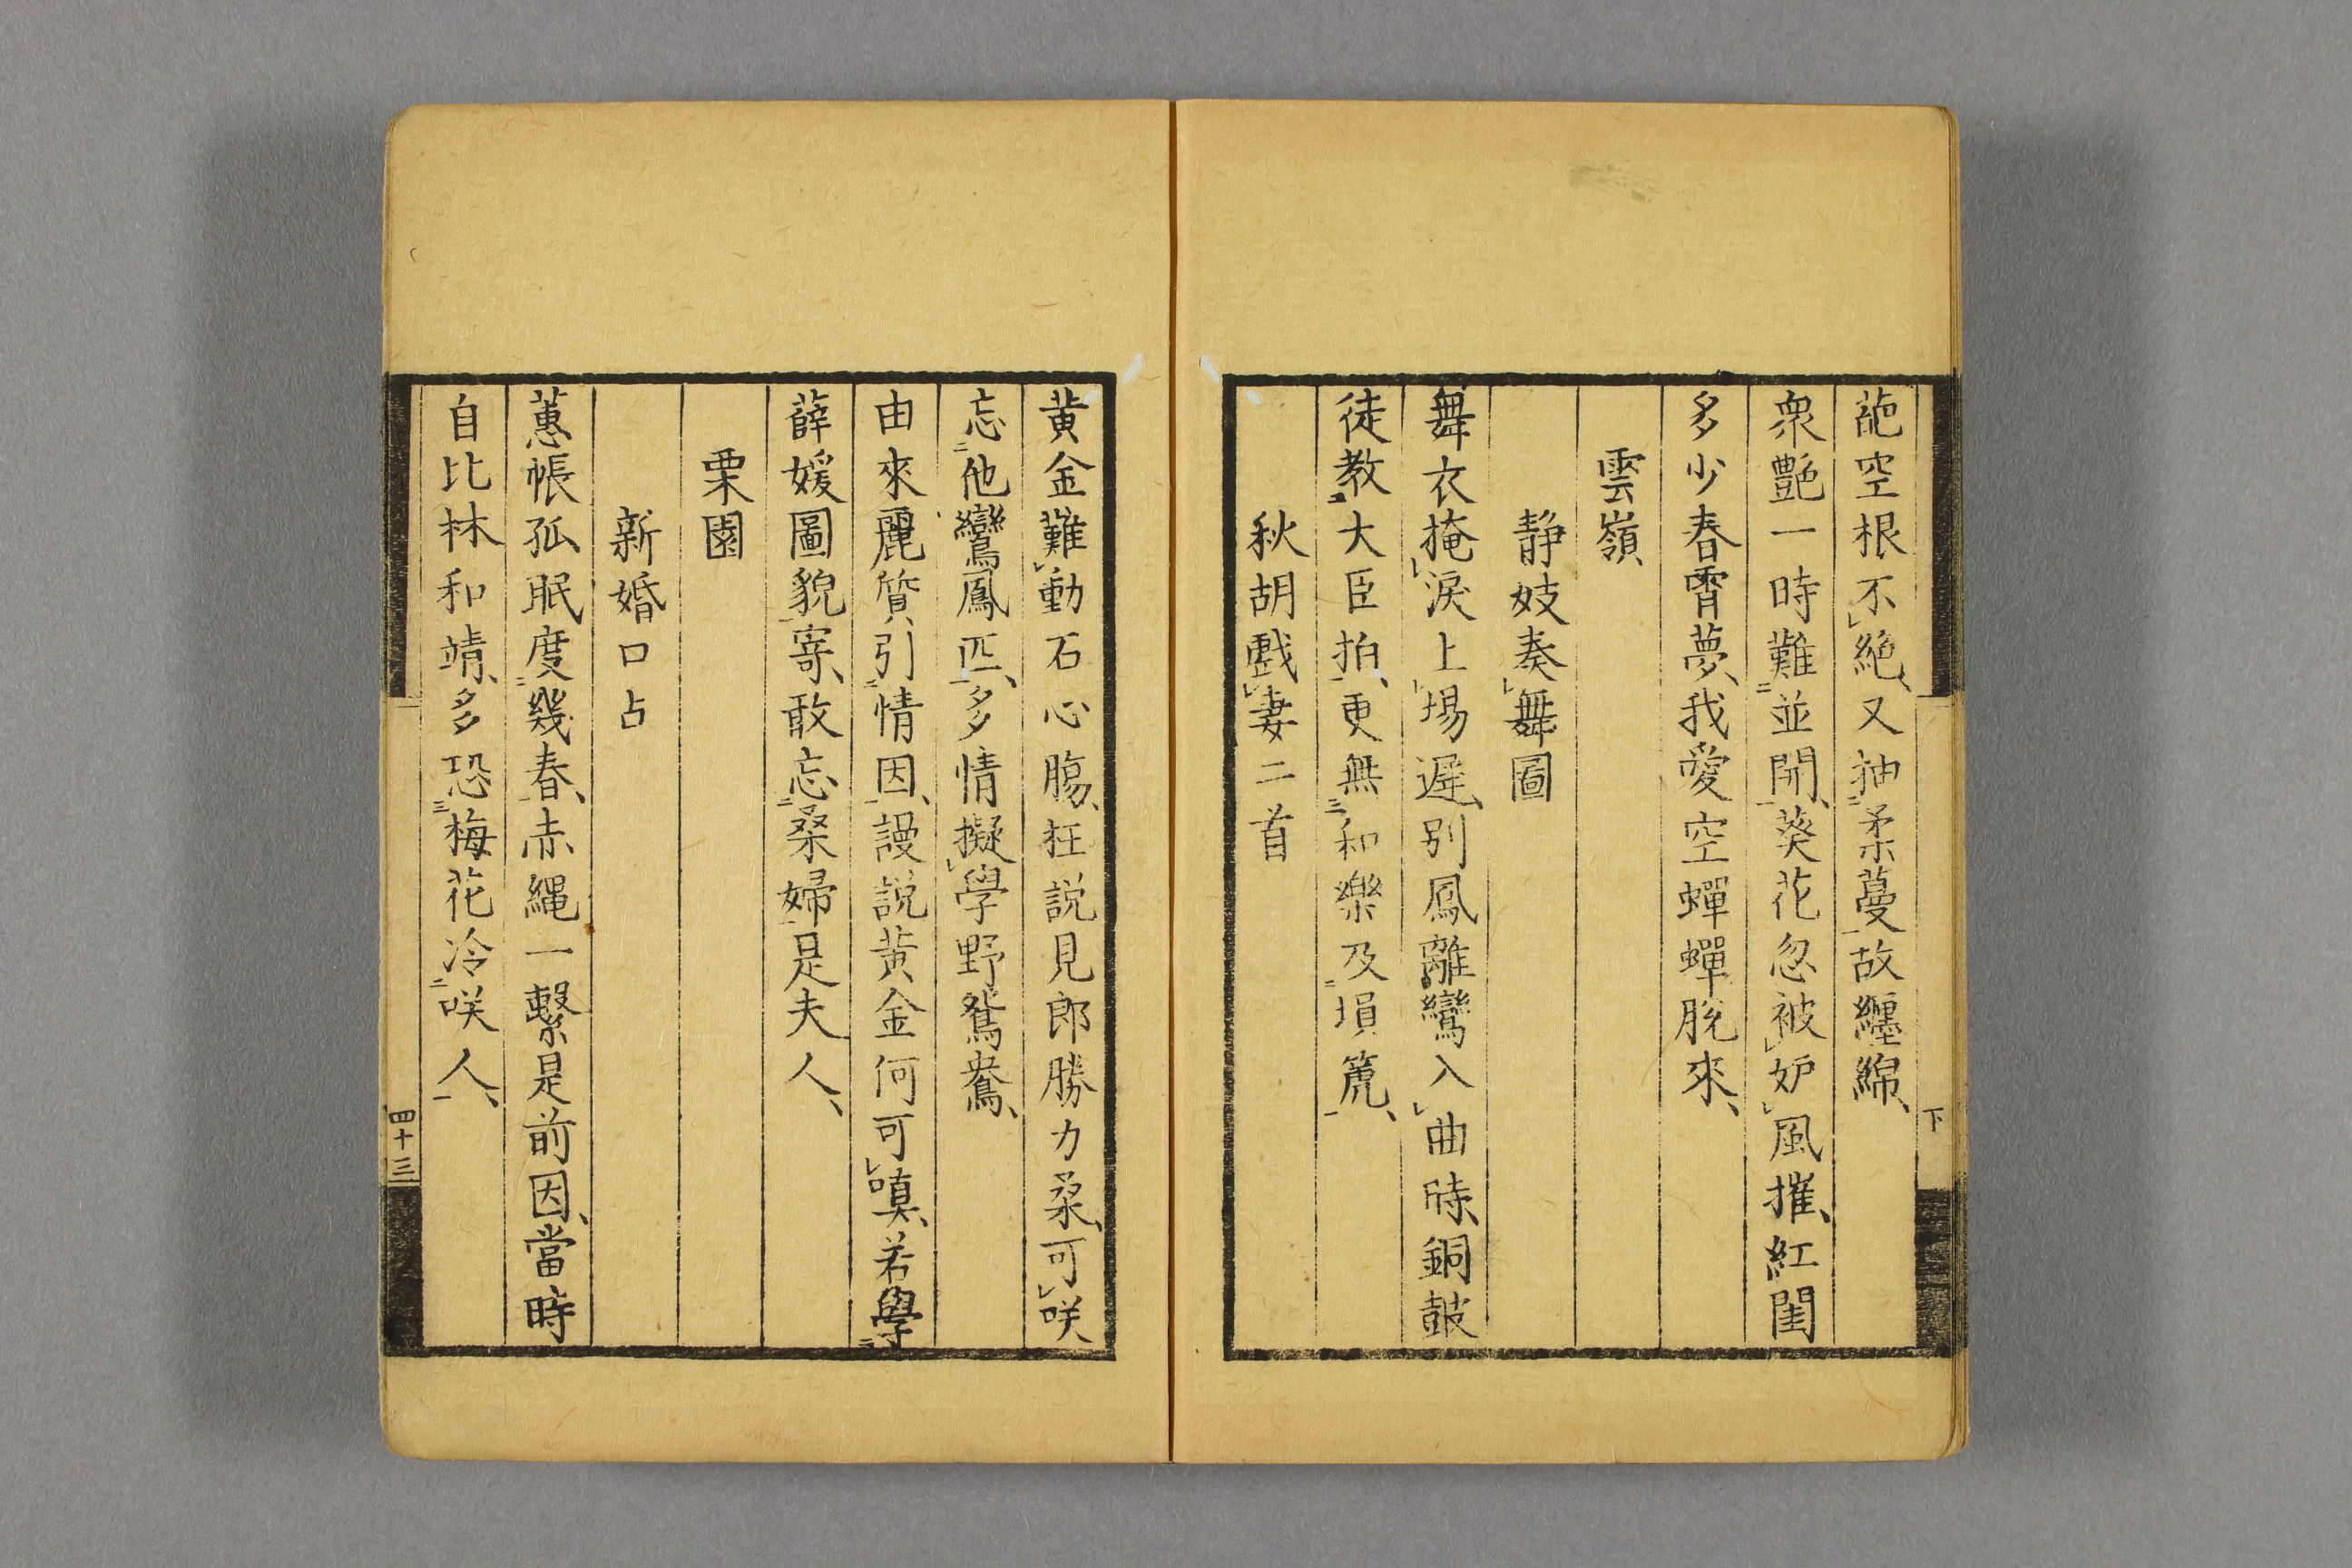 葩空根不絶又抽柔蔓故纏綿
衆艶一時難並開葵花忽被妒風摧紅閨
多少春宵夢我愛空蟬蟬脫來
雲嶺
静妓奏舞圖
舞衣掩淚上場遲別鳳離鸞入曲時銅皷
徒教大臣拍更無和樂及塤篪
秋胡戲妻二首
下
黄金難動石心膓枉説見郎勝力桒可咲
忘他鸞鳳匹多情擬學野鴛鴦
由來麗質引情因謾説黄金何可嗔若學
薛媛圖貌寄敢忘桑婦是夫人
栗園
新婚口占
蕙帳孤眠度幾春赤縄一繋是前因當時
自比林和靖多恐梅花冷咲人
四十三